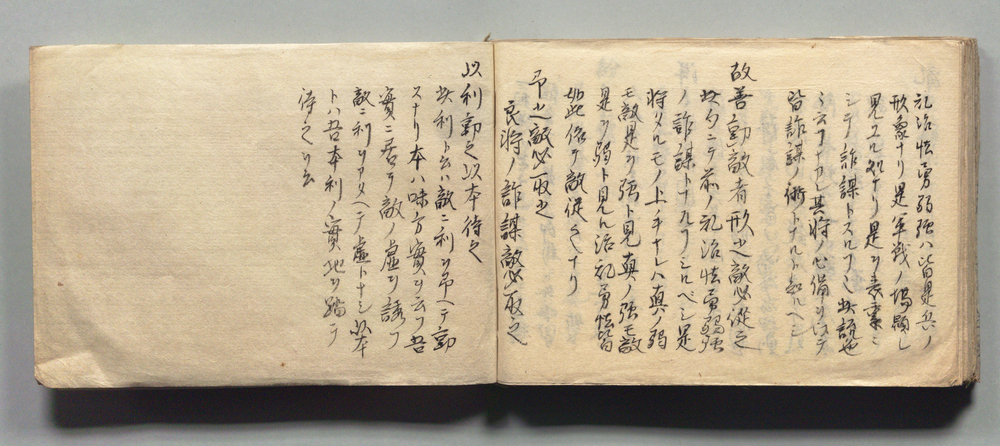 乱治怯勇弱強ハ皆是兵ノ
形象ナリ是軍戦ノ場顕レ
見ユル処ナリ是ヲ表裏ニ
シテ詐謀トスル
其将ノ心備
皆詐謀ノ術トナルト知ルヘシ
故善動敵者形之敵必従之
此句ニテ前ノ乱治怯勇弱強
ノ詐謀トナル シルベシ是
将タルモノ上手ナレハ真ノ弱
モ敵是ヲ強ト見真ノ強モ敵
是ヲ弱ト見ル治乱勇怯皆
此 テ敵従之ナリ
予之敵必取之
良将ノ詐謀敵必取之
以利動之以本待之
此利ト云ハ敵ニ利ヲ予ヘテ動
スナリ本ハ味方実ヲ云フ吾
實ニ居テ敵ノ虚ヲ誘フ
敵ニ利ヲアタヘテ虚トナシ此本
トハ吾本利ノ實地ヲ踏テ
待之ヲ云